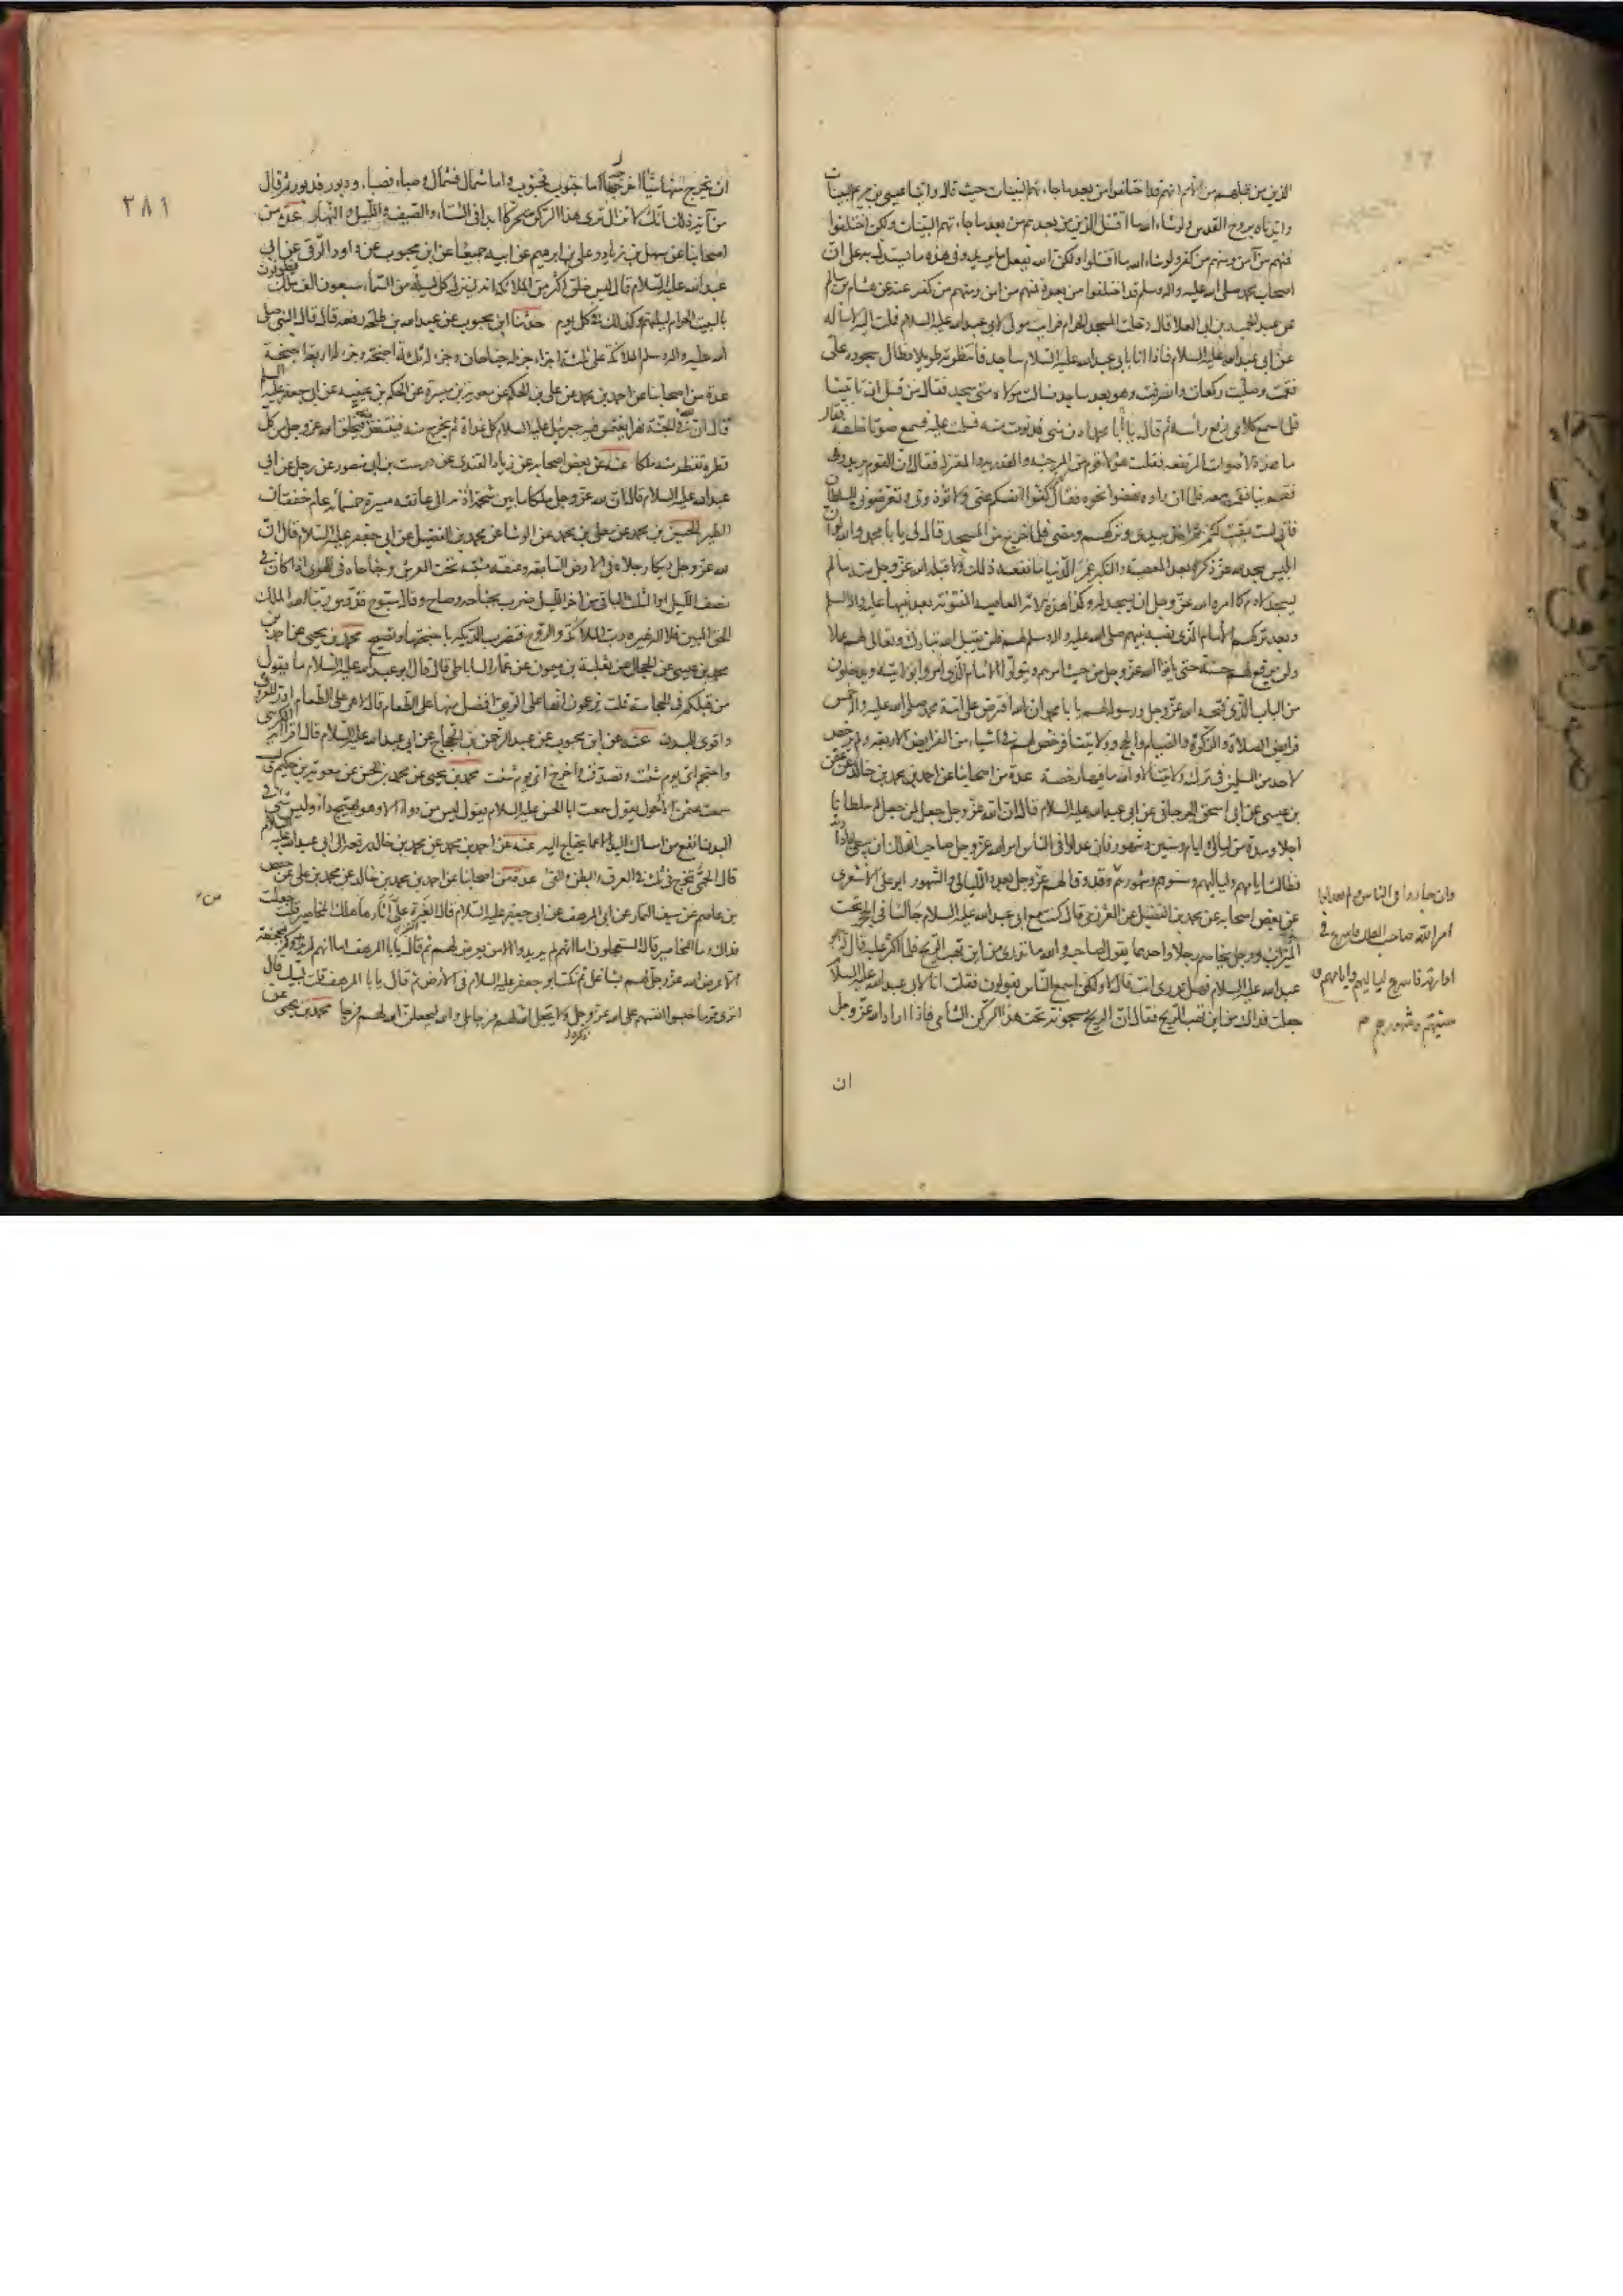 الذين من قبلهم من الأمم انهم قد اختلفوا من بعد ما جاءتهم البينات حيث قال واتينا عيسى بن مريم البينات
وايدناه بروح القدس ولو شاء الله ما اقتتل الذين من بعدهم من بعد ما جاءتهم البينات ولكن اختلفوا
فمنهم من آمن ومنهم من كفر ولو شاء الله ما اقتتلوا ولكن الله يفعل ما يريد وفي هذا ما يستدل به على ان
اصحاب محمد صلى الله عليه واله وسلم قد اختلفوا من بعده فمنهم من امن ومنهم من كفر عنه عن هشام بن سالم
عن عبد الحميد بن ابي العلا قال دخلت المسجد الحرام فرايت مولى لابي عبد الله عليه السلام فملت اليه لاساله
عن ابي عبد الله عليه السلام فاذا انا بابي عبد الله عليه السلام ساجد فانتظرته طويلا فطال سجوده علي
فقمت وصليت ركعات وانصرفت وهو بعد ساجد فسالت مولاه متى سجد فقال من قبل ان تاتينا
فلما سمع كلامي رفع رأسه ثم قال يا أبا محمد ادن مني فدنوت منه فسلمت عليه فسمع صوتا خلفه فقال
ما هذه الأصوات المرتفعة فقلت هؤلاء قوم من المرجئة والقدرية والمعتزلة فقال ان القوم يريدوني
فقم بنا فقمت معه فلما ان راوه نهضوا نحوه فقال لهم كفوا انفسكم عني ولا تؤذوني وتعرضوني للسلطان
فاني لست بمفت لكم ثم اخذ بيدي وتركهم ومضى فلما خرج من المسجد قال لي يا با محمد والله لو ان
ابليس سجد لله عز ذكره بعد المعصية والتكبر عمر الدنيا ما نفعه ذلك ولا قبله الله عز وجل ما لم
يسجد لادم كما امره الله عز وجل ان يسجد له وكذلك هذه الامة العاصية المفتونة بعد نبيها عليه واله السلم
وبعد تركهم الأمام الذي نصبه نبيهم صلى الله عليه واله وسلم لهم فلن يقبل الله تبارك وتعالى لهم عملا
ولن يرفع لهم حسنة حتى ياتوا الله عز وجل من حيث امرهم ويتولوا الامام الذي امروا بولايته ويدخلوا
من الباب الذي فتحه الله عز وجل ورسوله لهم يا با محمد ان الله افترض على امة محمد صلى الله عليه واله خمس
فرايض الصلاة والزكوة والصيام والحج وولايتنا فرخص لهم في اشياء من الفرايض الاربعة ولم يرخص
لاحد من المسلمين في ترك ولايتنا لا والله ما فيها رخصة عدة من اصحابنا عن احمد بن محمد بن خالد عن عثمن
بن عيسى عن ابي اسحق الجرجاني عن ابي عبد الله عليه السلام قال ان الله عز وجل جعل لمن جعل له سلطانا
اجلا ومدة من ليالي وايام وسنين وشهور فان عدلوا في الناس امر الله عز وجل صاحب الفلك ان يبطئ بادارته
فطالت ايامهم ولياليهم وسنوهم وشهورهم وقد وفا لهم عز وجل بعدد الليالي والشهور ابو علي الأشعري
عن بعض اصحابه عن محمد بن الفضيل عن العرزمي قال كنت مع ابي عبد الله عليه السلام جالسا في الحجر تحت
الميزاب ورجل يخاصم رجلا واحدهما يقول لصاحبه والله ما تدري من اين تهب الريح فلما اكثر عليه قال ابو
عبد الله عليه السلام فهل تدري انت قال لا ولكني اسمع الناس يقولون فقلت انا لابي عبد الله عليه السلام
جعلت فداك من اين تهب الريح فقال ان الريح مسجونة تحت هذا الركن الشامي فاذا اراد الله عز وجل
ان
وان جاروا في الناس ولم يعدلوا
امر الله صاحب الفلك فاسرع في
ادارته فاسرع لياليهم وايامهم و
سنيهم وشهورهم
٢٨١
ان يخرج منها شيئا اخرجه اما جنوب فجنوب واما شمال فشمال وصباء فصباء ودبور فدبور ثم قال
من آية ذلك انك لا تزال ترى هذا الركن متحركا ابدا في الشتاء والصيف والليل والنهار عدة من
اصحابنا عن سهل بن زياد وعلي بن ابرهيم عن ابيه جميعا عن ابن محبوب عن داود الرقي عن ابي
عبد الله عليه السلام قال ليس خلق اكثر من الملائكة انه لينزل كل ليلة من السماء سبعون الف ملك فيطوفون
بالبيت الحرام ليلتهم وكذلك في كل يوم حدثنا ابن محبوب عن عبد الله بن طلحة رفعه قال قال النبي صلى
الله عليه واله وسلم الملائكة على ثلثة اجزاء جزء له جناحان وجزء له ثلثة اجنحة وجزء له اربعة اجنحة
عدة من اصحابنا عن احمد بن محمد عن علي بن الحكم عن معوية بن ميسرة عن الحكم بن عتيبة عن ابي جعفر عليه السلم
قال ان في الجنة نهرا يغتمس فيه جبرئيل عليه السلام كل غداة ثم يخرج منه فينتفض فيخلق الله عز وجل من كل
قطرة تقطر منه ملكا عنه عن بعض اصحابه عن زياد القندي عن درست بن ابي منصور عن رجل عن ابي
عبد الله عليه السلام قال ان لله عز وجل ملكا ما بين شحمة اذنه الى عاتقه مسيرة خمسمائة عام خفقان
الطير الحسين بن محمد عن معلى بن محمد عن الوشا عن محمد بن الفضيل عن ابي جعفر عليه السلام قال ان
لله عز وجل ديكا رجلاه في الارض السابعة وعنقه مثنية تحت العرش وجناحاه في الهوى اذا كان في
نصف الليل او الثلث الباقي من اخر الليل ضرب بجناحه وصاح وقال سبوح قدوس ربنا الله الملك
الحق المبين فلا اله غيره رب الملائكة والروح فتضرب الديكة باجنحتها وتصيح محمد بن يحيى عن احمد بن
محمد بن عيسى عن الحجال عن ثعلبة بن ميمون عن عمار الساباطي قال قال ابو عبد الله عليه السلام ما يقول
من قبلكم في الحجامة قلت يزعمون انها على الريق افضل منها على الطعام قال لا هي على الطعام ادر للعروق
واقوى للبدن عنه عن ابن محبوب عن عبد الرحمن بن الحجاج عن ابي عبد الله عليه السلام قال اقرأ آية الكرسي
واحتجم اي يوم شئت وتصدق واخرج اي يوم شئت محمد بن يحيى عن محمد بن الحسن عن معوية بن حكيم قال
سمعت عثمن الأحول يقول سمعت ابا الحسن عليه السلام يقول ليس من دواء الا وهو يهيج داء وليس شيء في
البدن انفع من امساك اليد الا عما يحتاج اليه عنه عن احمد بن محمد عن محمد بن خالد رفعه الى ابي عبد الله عليه السلام
قال الحمى تخرج في ثلث في العرق والبطن والقئ عدة من اصحابنا عن احمد بن محمد بن خالد عن محمد بن علي عن حفص
بن عاصم عن سيف التمار عن ابي المرهف عن ابي جعفر عليه السلام قال الغبرة على من اثارها هلك المحاصير قلت جعلت
فداك وما المحاصير قال المستعجلون اما انهم لم يريدوا الا من يعرض لهم ثم قال يا با المرهف اما انهم لم يريدوكم بمجحفة
الا عرض الله عز وجل لهم بشاغل ثم نكت ابو جعفر عليه السلام في الأرض ثم قال يا با المرهف قلت لبيك قال
اترى قوما حبسوا انفسهم على الله عز وجل لا يجعل الله لهم فرجا بلى والله ليجعلن الله لهم فرجا محمد بن يحيى عن